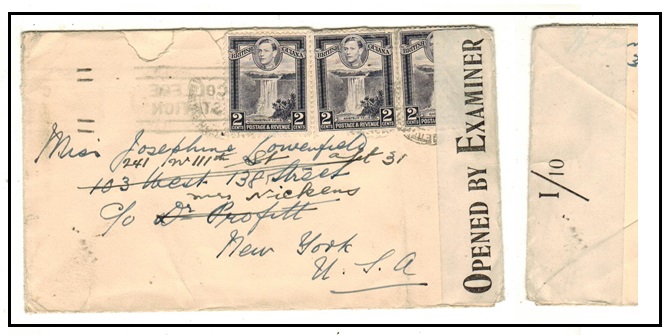 BRITISH GUIANA
2 CENTS POSTAGE & REVENUE 2 CENTS
BRITISH GUIANA
2 CENTS POSTAGE & REVENUE 2 CENTS
BRITISH
2 CENTS
COLLEGE
STATION
Miss Josephine Lowenfield
241 W 111th St apt 31
103 West 138 Street
Mrs Nickens
c/o Dr Profitt
New York
U.S.A
OPENED BY EXAMINER
I/10